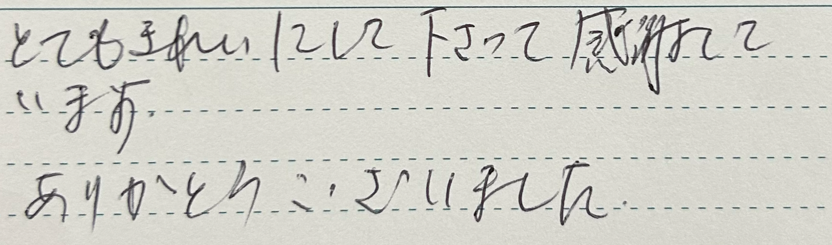 とてもきれいにして下さって感謝して
います.
ありがとうございました.